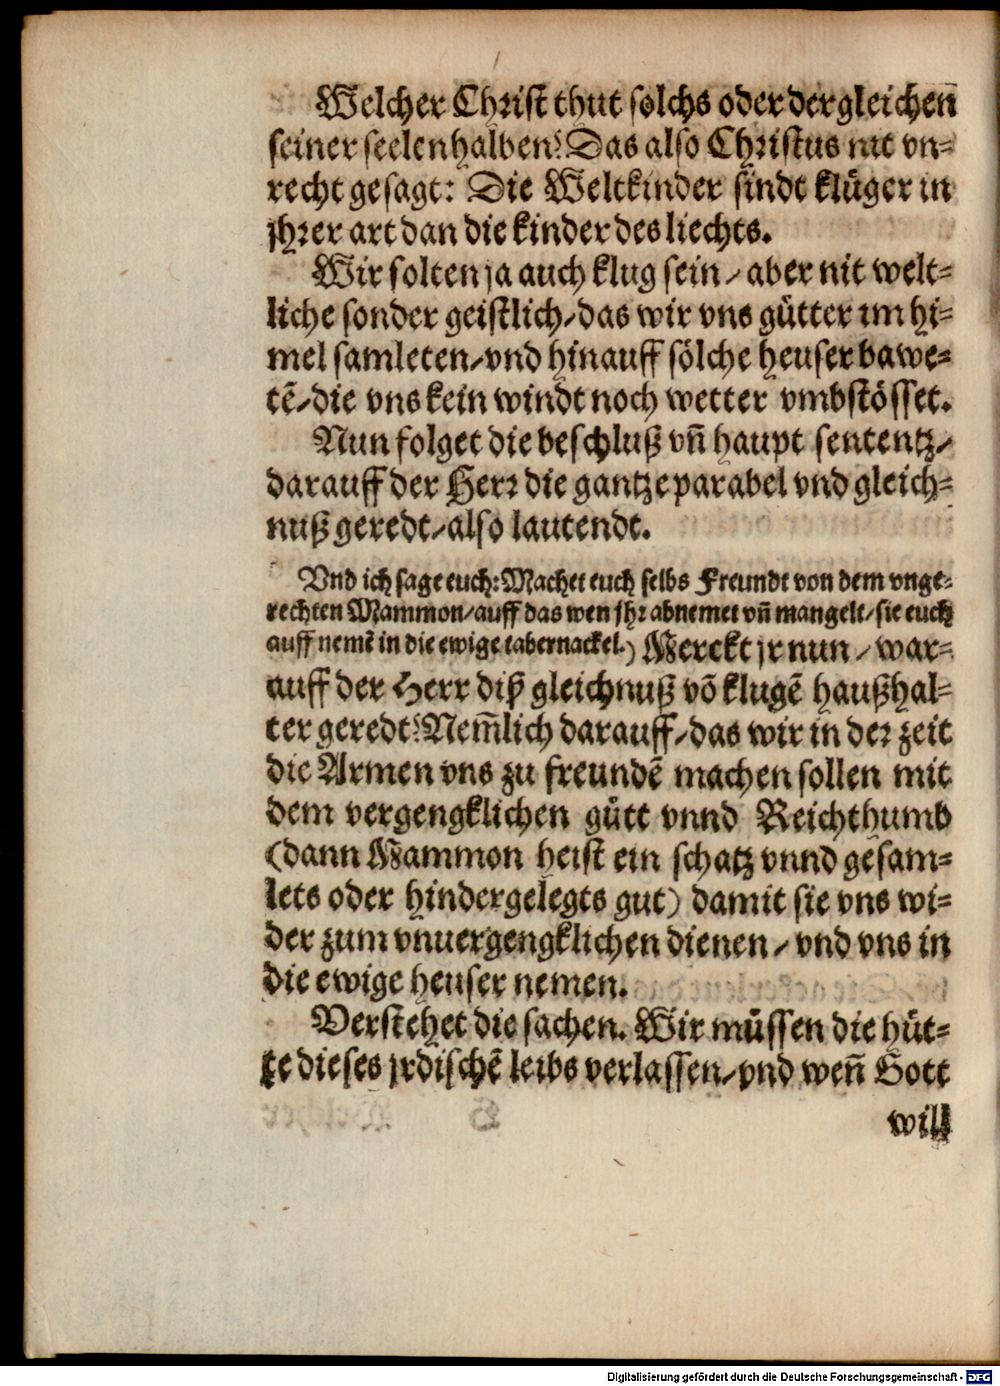 Welcher Christ thut solchs oder dergleichen̄
seiner seelen halben? Das also Christus nit vn⸗
recht gesagt: Die Weltkinder sindt klüger in
jhrer art dan die kinder des liechts.
Wir solten ja auch klug sein / aber nit welt⸗
liche sonder geistlich / das wir vns gütter im hi⸗
mel samleten / vnd hinauff sölche heuser bawe⸗
tē / die vns kein windt noch wetter vmbstösset.
Nun folget die beschluß vn̄ haupt sententz /
darauff der Herr die gantze parabel vnd gleich⸗
nuß geredt / also lautendt.
Vnd ich sage euch: Machet euch selbs Freundt von dem vnge⸗
rechten Mammon / auff das wen jhr abnemet vn̄ mangelt / sie euch
auff nemē in die ewige tabernackel.) Merckt jr nun / war⸗
auff der Herr diß gleichnuß vō klugē haußhal⸗
ter geredt? Nem̄lich darauff / das wir in der zeit
die Armen vns zu freundē machen sollen mit
dem vergengklichen gütt vnnd Reichthumb
(dann Mammon heist ein schatz vnnd gesam⸗
lets oder hindergelegts gut) damit sie vns wi⸗
der zum vnuergengklichen dienen / vnd vns in
die ewige heuser nemen.
Verstehet die sachen. Wir müssen die hüt⸗
te dieses jrdischē leibs verlassen / vnd wen̄ Gott
will
Digitalisierung gefördert durch die Deutsche Forschungsgemeinschaft - DFG